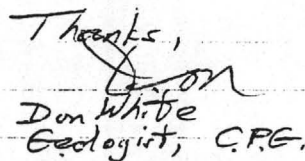 Thanks,
Don
Don White
Geologist, C.P.G.